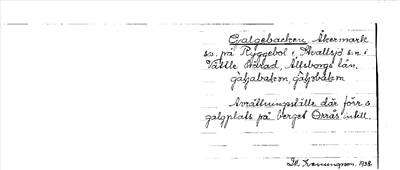 Galgebacken, Åkermark
s.v. på Ryggebol i Skallsjö s:n i
Vättle härad, Älfsborgs län.
galjabakem, galjsbakem
Avrättningsställe där förr o
galgplats på berget Orrås intill.
1938.